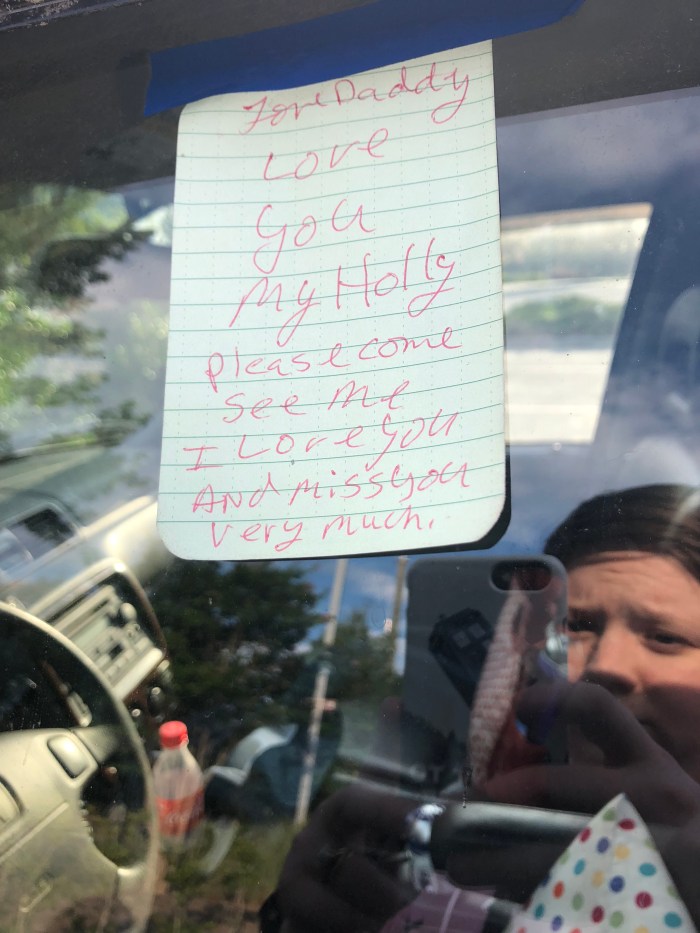 Love Daddy
Love
you
My Holly
please come
see me
I Love you
And miss you
very much.